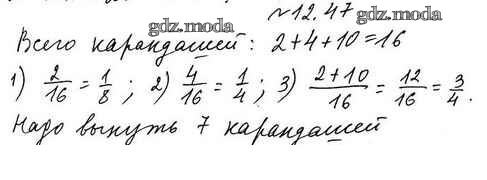 №12.47
gdz.moda gdz.moda
Всего карандашей: 2+4+10=16
1) 2/16 = 1/8 ; 2) 4/16 = 1/4 ; 3) (2+10)/16 = 12/16 = 3/4.
Надо вынуть 7 карандашей